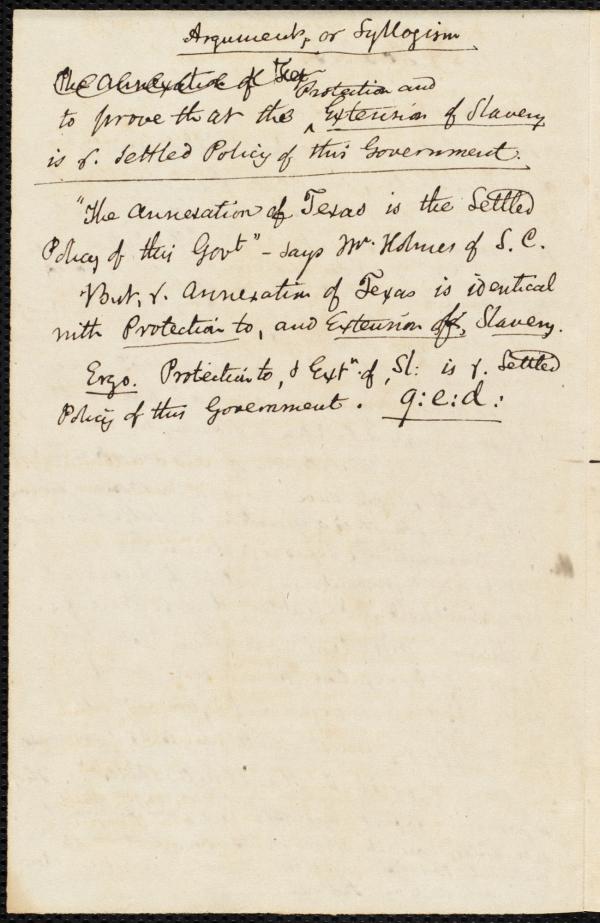 Argument, or Syllogism
The Annexation of Tex
Protection and
to prove that the ^ Extension of Slavery
is y. Settled Policy of this Government.
"The Annexation of Texas is the Settled
Policy of this Govt" - says Mr. Holmes of S. C.
But, y. Annexation of Texas is identical
with Protection to, and Extension of, Slavery.
Ergo. Protection to, & Extn. of, Sl: is y. Settled
Policy of this Government. q:e:d: